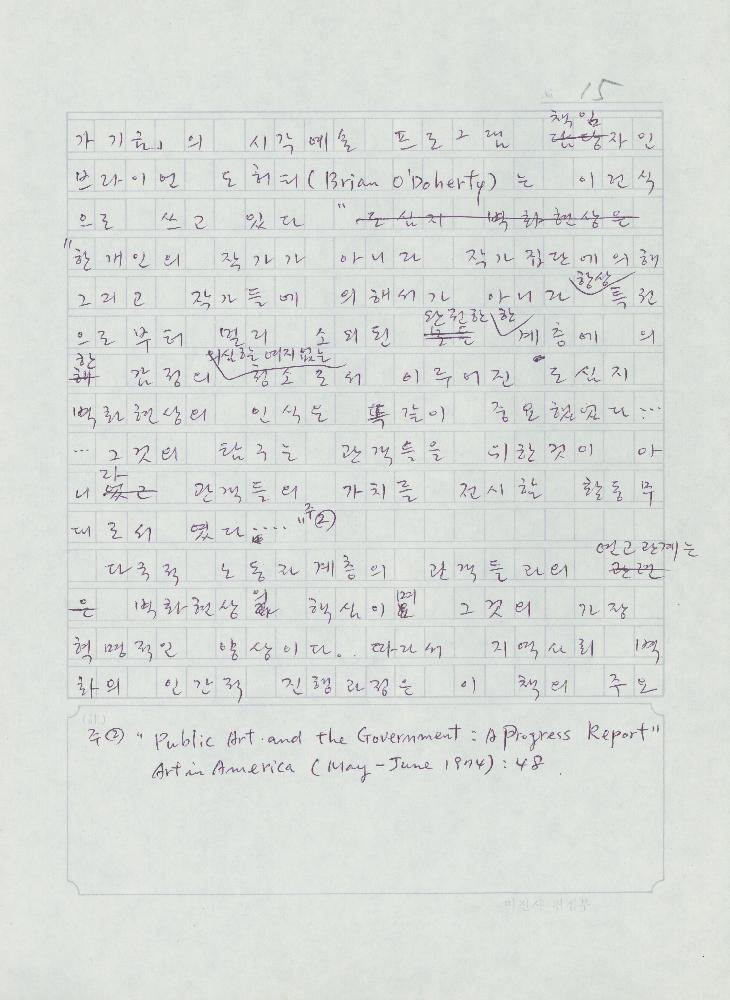 15
책임
가기금」의 시각예술 프로그램 담당자인
브라이언 도허티(Brian O'Doherty)는 이런식
으로 쓰고 있다 " 도심지 벽화현상은
"한개인의 작가가 아니라 작가집단에의해
항상
그리고 작가들에 의해서가 아니라 특권
완전한 한
으로부터 멀리 소외된 계층에 의
한 의심할 여지없는
해 감정의 형소로서 이루어진 도심지
벽화현상의 인식은 똑같이 중요했었다…
… 그것의 탐구는 관객들을 위한것이 아
라
니었고 관객들의 가치를 전시할 활동무
대로서 였다…." 주②
연고관계는
다국적 노동자계층의 관객들과의 관련
은 벽화현상의 핵심이며 그것의 가장
혁명적인 양상이다. 따라서 지역사회 벽
화의 인간적 진행과정은 이 책의 주요
(비고)
주② " Public Art and the Government : A Progress Report"
Art in America (May-June 1974) : 48.
미진사 편집부